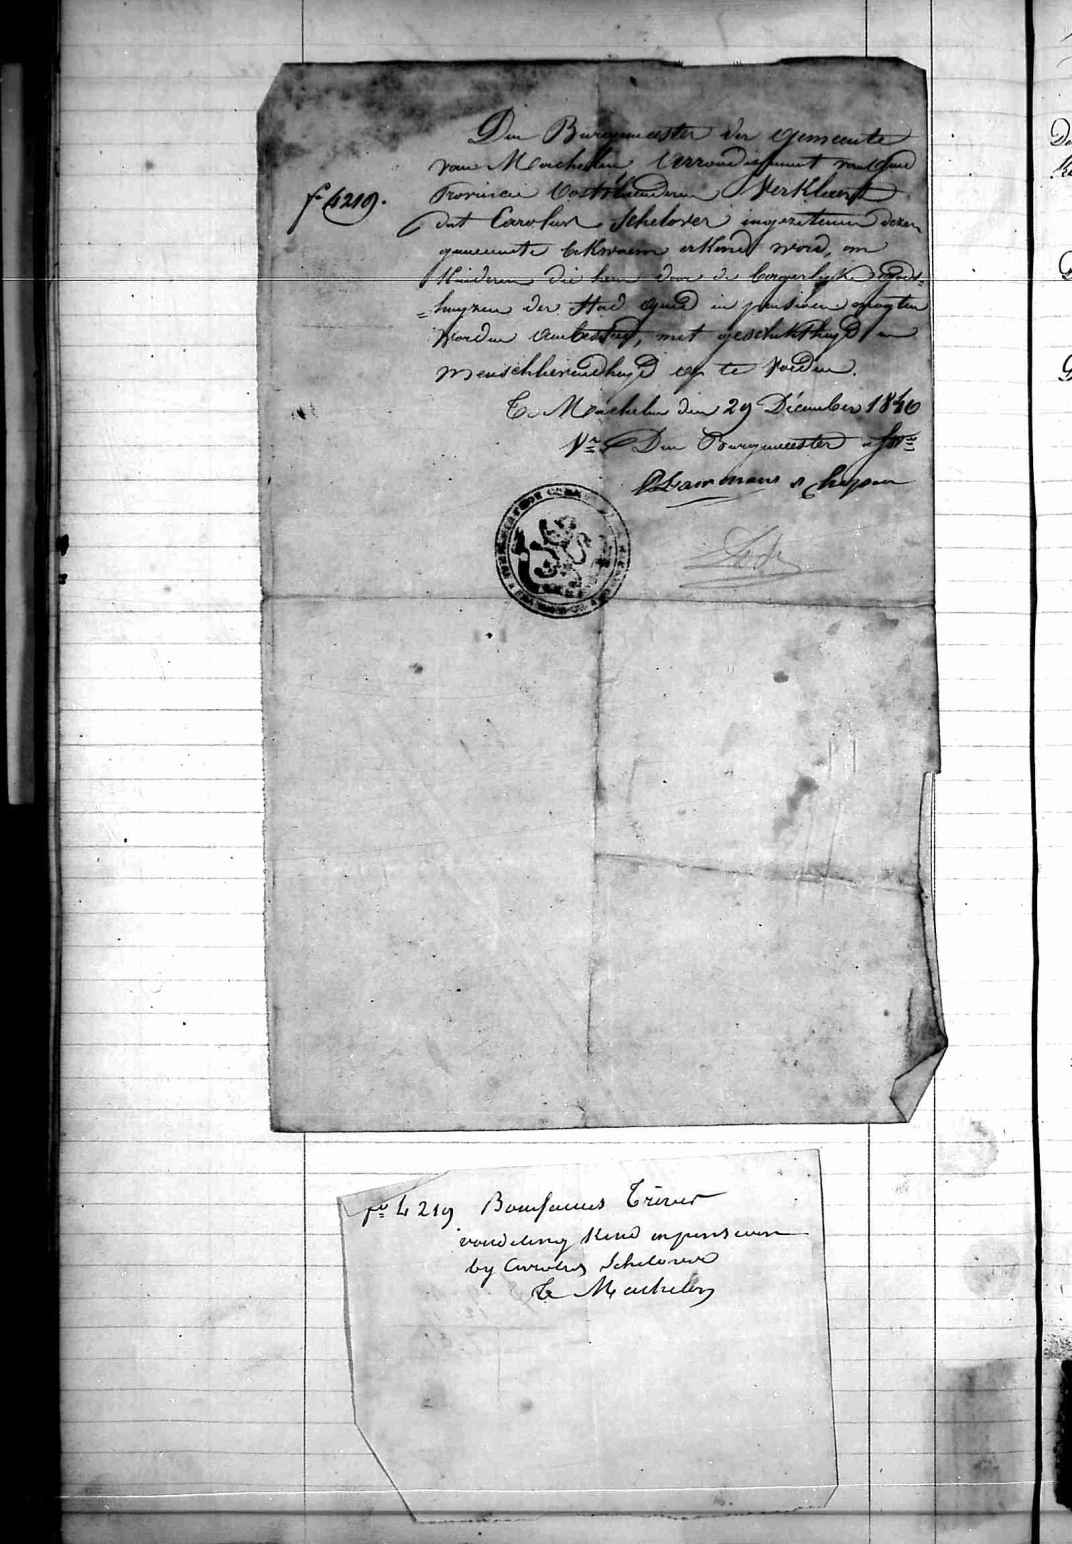 Den Burgemeester der gemeente
van Machelen Arrondissement van Gend
Provincie Oostvlanderen Verklaert
f° 4219.
dat Carolus Schelover ingezetenen dezer
gemeente bekwaem erkend word, om
Kinderen die hem door de borgerlyke Gods=
=huyzen der Stad Gend in pensioen mogten
worden aenbesteed, met geschikthyd en
menschlievendhyd op te voeden.
Te Machelen den 29 Décember 1840
Den Burgemeester
f° 4219 Bonifacius Triver
vondeling Kind in pensioen
by Carolus Schelover
Te Machelen